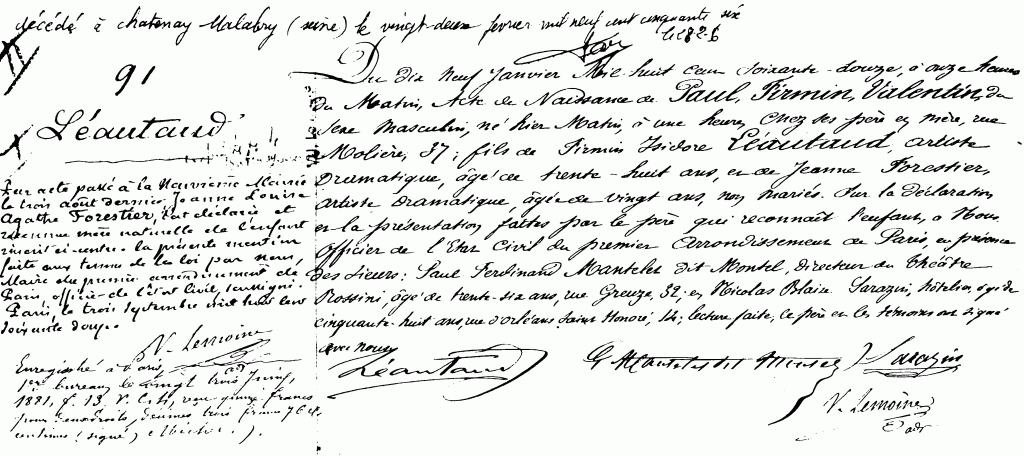 décédé à Chatenay Malabry (Seine) le vingt-deux février mil neuf cent cinquante six
91
Léautaud
Par acte passé à la Neuvième Mairie
le trois août dernier, Jeanne Louise
Agathe Forestier, s'est déclarée et
reconnue mère naturelle de l'enfant
inscrit ci-contre. La présente mention
faite aux termes de la loi par nous,
Maire du premier arrondissement de
Paris, officier de l'état civil, soussigné.
Paris, le trois septembre mil huit cent
soixante douze.
V. Lemoine
adj
Enregistré à Paris,
1er bureau le vingt trois Juin,
1881, f. 13 V. C.
pour droits, décimes trois francs 76
centimes (signé)
Du dix neuf Janvier Mil-huit cent soixante-douze, à onze heures
du Matin, Acte de Naissance de Paul, Firmin, Valentin, du
sexe masculin, né hier Matin, à une heure, chez ses père et mère, rue
Molière, 37; fils de Firmin Isidore Léautaud, artiste
Dramatique, âgé de trente-huit ans, et de Jeanne Forestier,
artiste dramatique, âgée de vingt ans, non mariés. Sur la déclaration
et la présentation faites par le père qui reconnaît l'enfant, à Nous
Officier de l'Etat Civil du premier Arrondissement de Paris, en présence
des sieurs: Paul Ferdinand Mantelet dit Montel, directeur du Théâtre
Rossini, âgé de trente-six ans, rue Greuze, 32; et Nicolas Blaise Sarazin, hôtelier, âgé de
cinquante-huit ans, rue d'Orléans Saint Honoré, 14; lecture faite, le père et les témoins ont signé
avec nous
Léautaud
Sarazin
V. Lemoine
adj